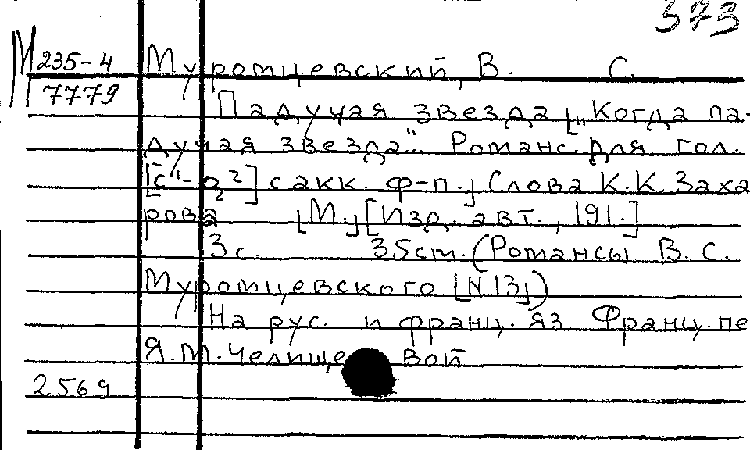 373
М 235-4 Муромцевский, В. С.
7779 Падучая звезда [„Когда па-
дучая звезда“... Романс. для гол.
[c¹-g²] с акк. ф-п.] Слова К.К. Заха
рова [М.] [Изд. авт., 191.]
3 с. 35 cm. (Романсы В. С.
Муромцевского [N 13])
На рус. и франц. яз Франц. пе
Я. М. Челище вой
2569